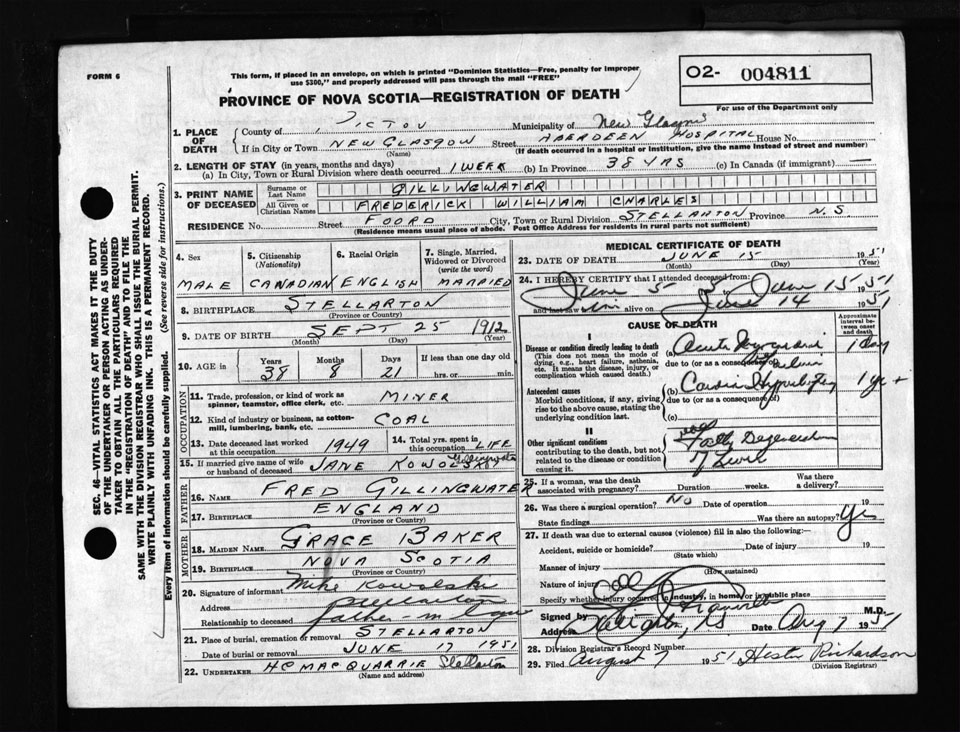 FORM 6
This form, if placed in an envelope, on which is printed "Dominion Statistics—Free, penalty for improper
use $300," and properly addressed will pass through the mail "FREE"
PROVINCE OF NOVA SCOTIA—REGISTRATION OF DEATH
O2- 004811
For use of the Department only
1. PLACE OF DEATH
County of PICTOU Municipality of New Glasgow
If in City or Town NEW GLASGOW Street ABERDEEN HOSPITAL House No.
(Name) (If death occurred in a hospital or institution, give the name instead of street and number)
2. LENGTH OF STAY (in years, months and days)
(a) In City, Town or Rural Division where death occurred 1 WEEK (b) In Province 38 YRS (c) In Canada (if immigrant) —
3. PRINT NAME OF DECEASED
Surname or Last Name GILLINGWATER
All Given or Christian Names FREDERICK WILLIAM CHARLES
RESIDENCE No. Street FOORD City, Town or Rural Division STELLARTON Province N.S
(Residence means usual place of abode. Post Office Address for residents in rural parts not sufficient)
SEC. 46—VITAL STATISTICS ACT MAKES IT THE DUTY
OF THE UNDERTAKER OR PERSON ACTING AS UNDER-
TAKER TO OBTAIN ALL THE PARTICULARS REQUIRED
IN THE "REGISTRATION OF DEATH" AND TO FILE THE
SAME WITH THE DIVISION REGISTRAR WHO SHALL ISSUE THE BURIAL PERMIT.
WRITE PLAINLY WITH UNFADING INK. THIS IS A PERMANENT RECORD.
Every item of information should be carefully supplied. (See reverse side for instructions.)
4. Sex 5. Citizenship (Nationality) 6. Racial Origin 7. Single, Married, Widowed or Divorced (write the word)
MALE CANADIAN ENGLISH MARRIED
8. BIRTHPLACE STELLARTON
(Province or Country)
9. DATE OF BIRTH SEPT 25 1912
(Month) (Day)
10. AGE in Years Months Days If less than one day old
38 8 21 hrs. or min.
OCCUPATION
11. Trade, profession, or kind of work as spinner, teamster, office clerk, etc. MINER
12. Kind of industry or business, as cotton-mill, lumbering, bank, etc. COAL
13. Date deceased last worked at this occupation 1949 14. Total yrs. spent in this occupation LIFE
15. If married give name of wife or husband of deceased JANE Gillingwater
FATHER
16. NAME FRED GILLINGWATER
17. BIRTHPLACE ENGLAND
(Province or Country)
MOTHER
18. MAIDEN NAME GRACE BAKER
19. BIRTHPLACE NOVA SCOTIA
(Province or Country)
20. Signature of informant Mike Kowalski
Address Stellarton
Relationship to deceased father-in-law
21. Place of burial, cremation or removal STELLARTON
Date of burial or removal JUNE 17 1951
22. UNDERTAKER H C MACQUARRIE Stellarton
(Name and address)
MEDICAL CERTIFICATE OF DEATH
23. DATE OF DEATH JUNE 15 1951
(Month) (Day)
24. I HEREBY CERTIFY that I attended deceased from:
June 5 to June 15 1951
and last saw him alive on June 14 1951
CAUSE OF DEATH
Approximate interval between onset and death
I
Disease or condition directly leading to death
(This does not mean the mode of dying, e.g., heart failure, asthenia, etc. It means the disease, injury, or complication which caused death.)
(a) Acute Myocardial 1 day
due to (or as a consequence of) Failure
Antecedent causes
Morbid conditions, if any, giving rise to the above cause, stating the underlying condition last.
(b) Cardiac Hypertrophy 1 yr +
due to (or as a consequence of)
(c)
II
Other significant conditions
contributing to the death, but not related to the disease or condition causing it.
Fatty Degeneration
of Liver
25. If a woman, was the death associated with pregnancy? Duration weeks. Was there a delivery?
26. Was there a surgical operation? No Date of operation 19
State findings Was there an autopsy? Yes
27. If death was due to external causes (violence) fill in also the following:
Accident, suicide or homicide? Date of injury 19
(State which)
Manner of injury
(How sustained)
Nature of injury
Specify whether injury occurred in industry, in home, or in public place
Signed by M.D.
Address Stellarton, NS Date Aug 7 1951
28. Division Registrar's Record Number
29. Filed August 7 1951 Hester Richardson
(Division Registrar)